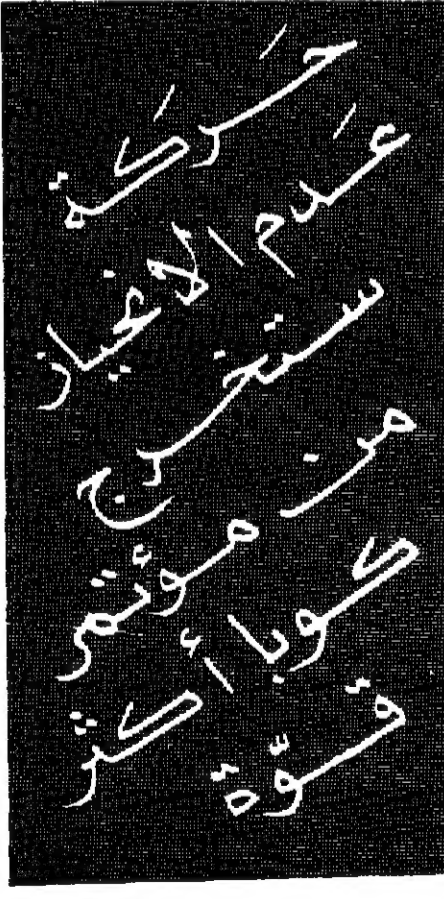 حَرَكَة
عَدم الانحياز
ستخرج
من مؤتمر
كوبا أكثر
قوّة